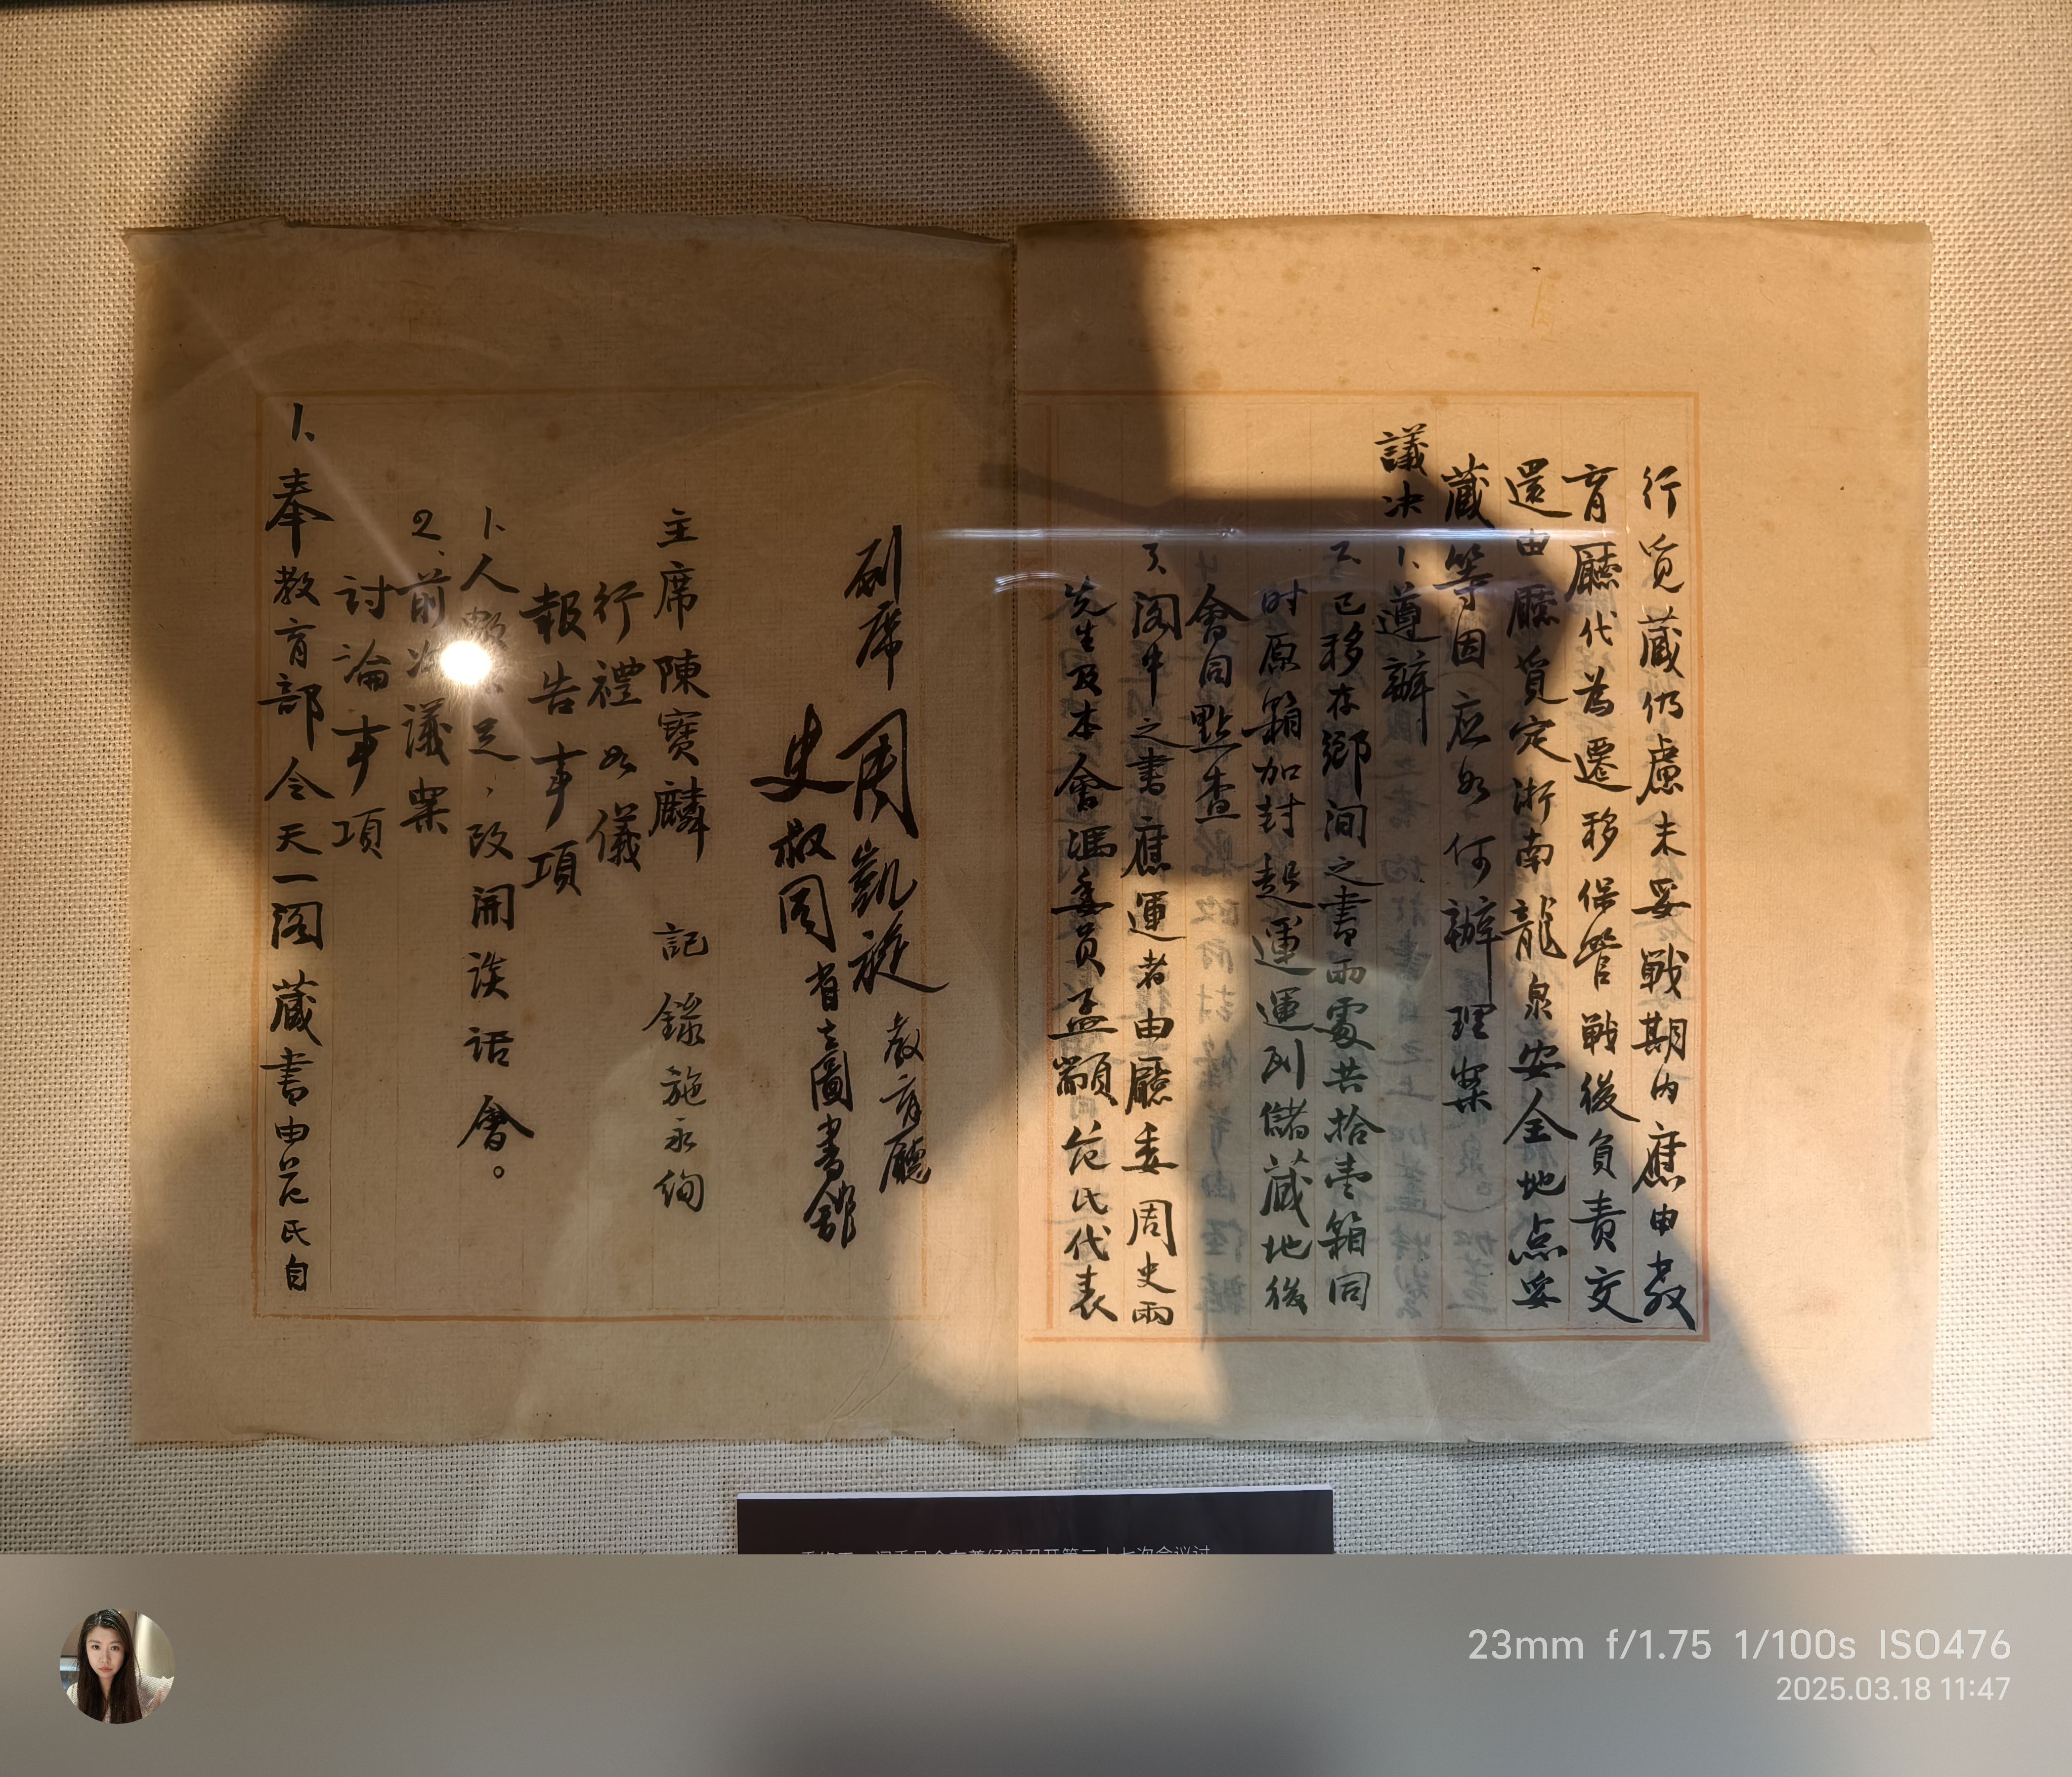 列席 周凱旋 教育廳
史叔同 省立圖書館
主席陳寶麟 記錄施永絢
行禮如儀
報告事項
1、人數 足,改開談話會。
2、前次議案
討論事項
1、奉教育部令天一阁藏書由范氏自
行覓藏仍慮未妥戰期内應由教
育廳代為遷移保管戰後負責交
還由廳覓定浙南龍泉安全地点妥
藏等因应如何辦理案
議决 1、遵辦
2、已移存鄉间之書兩處共拾壹箱同
时原箱加封起運運到儲藏地後
會同點查
3、阁中之書應運者由廳委周史兩
先生及本會馮委員孟顓范氏代表
23mm f/1.75 1/100s ISO476
2025.03.18 11:47